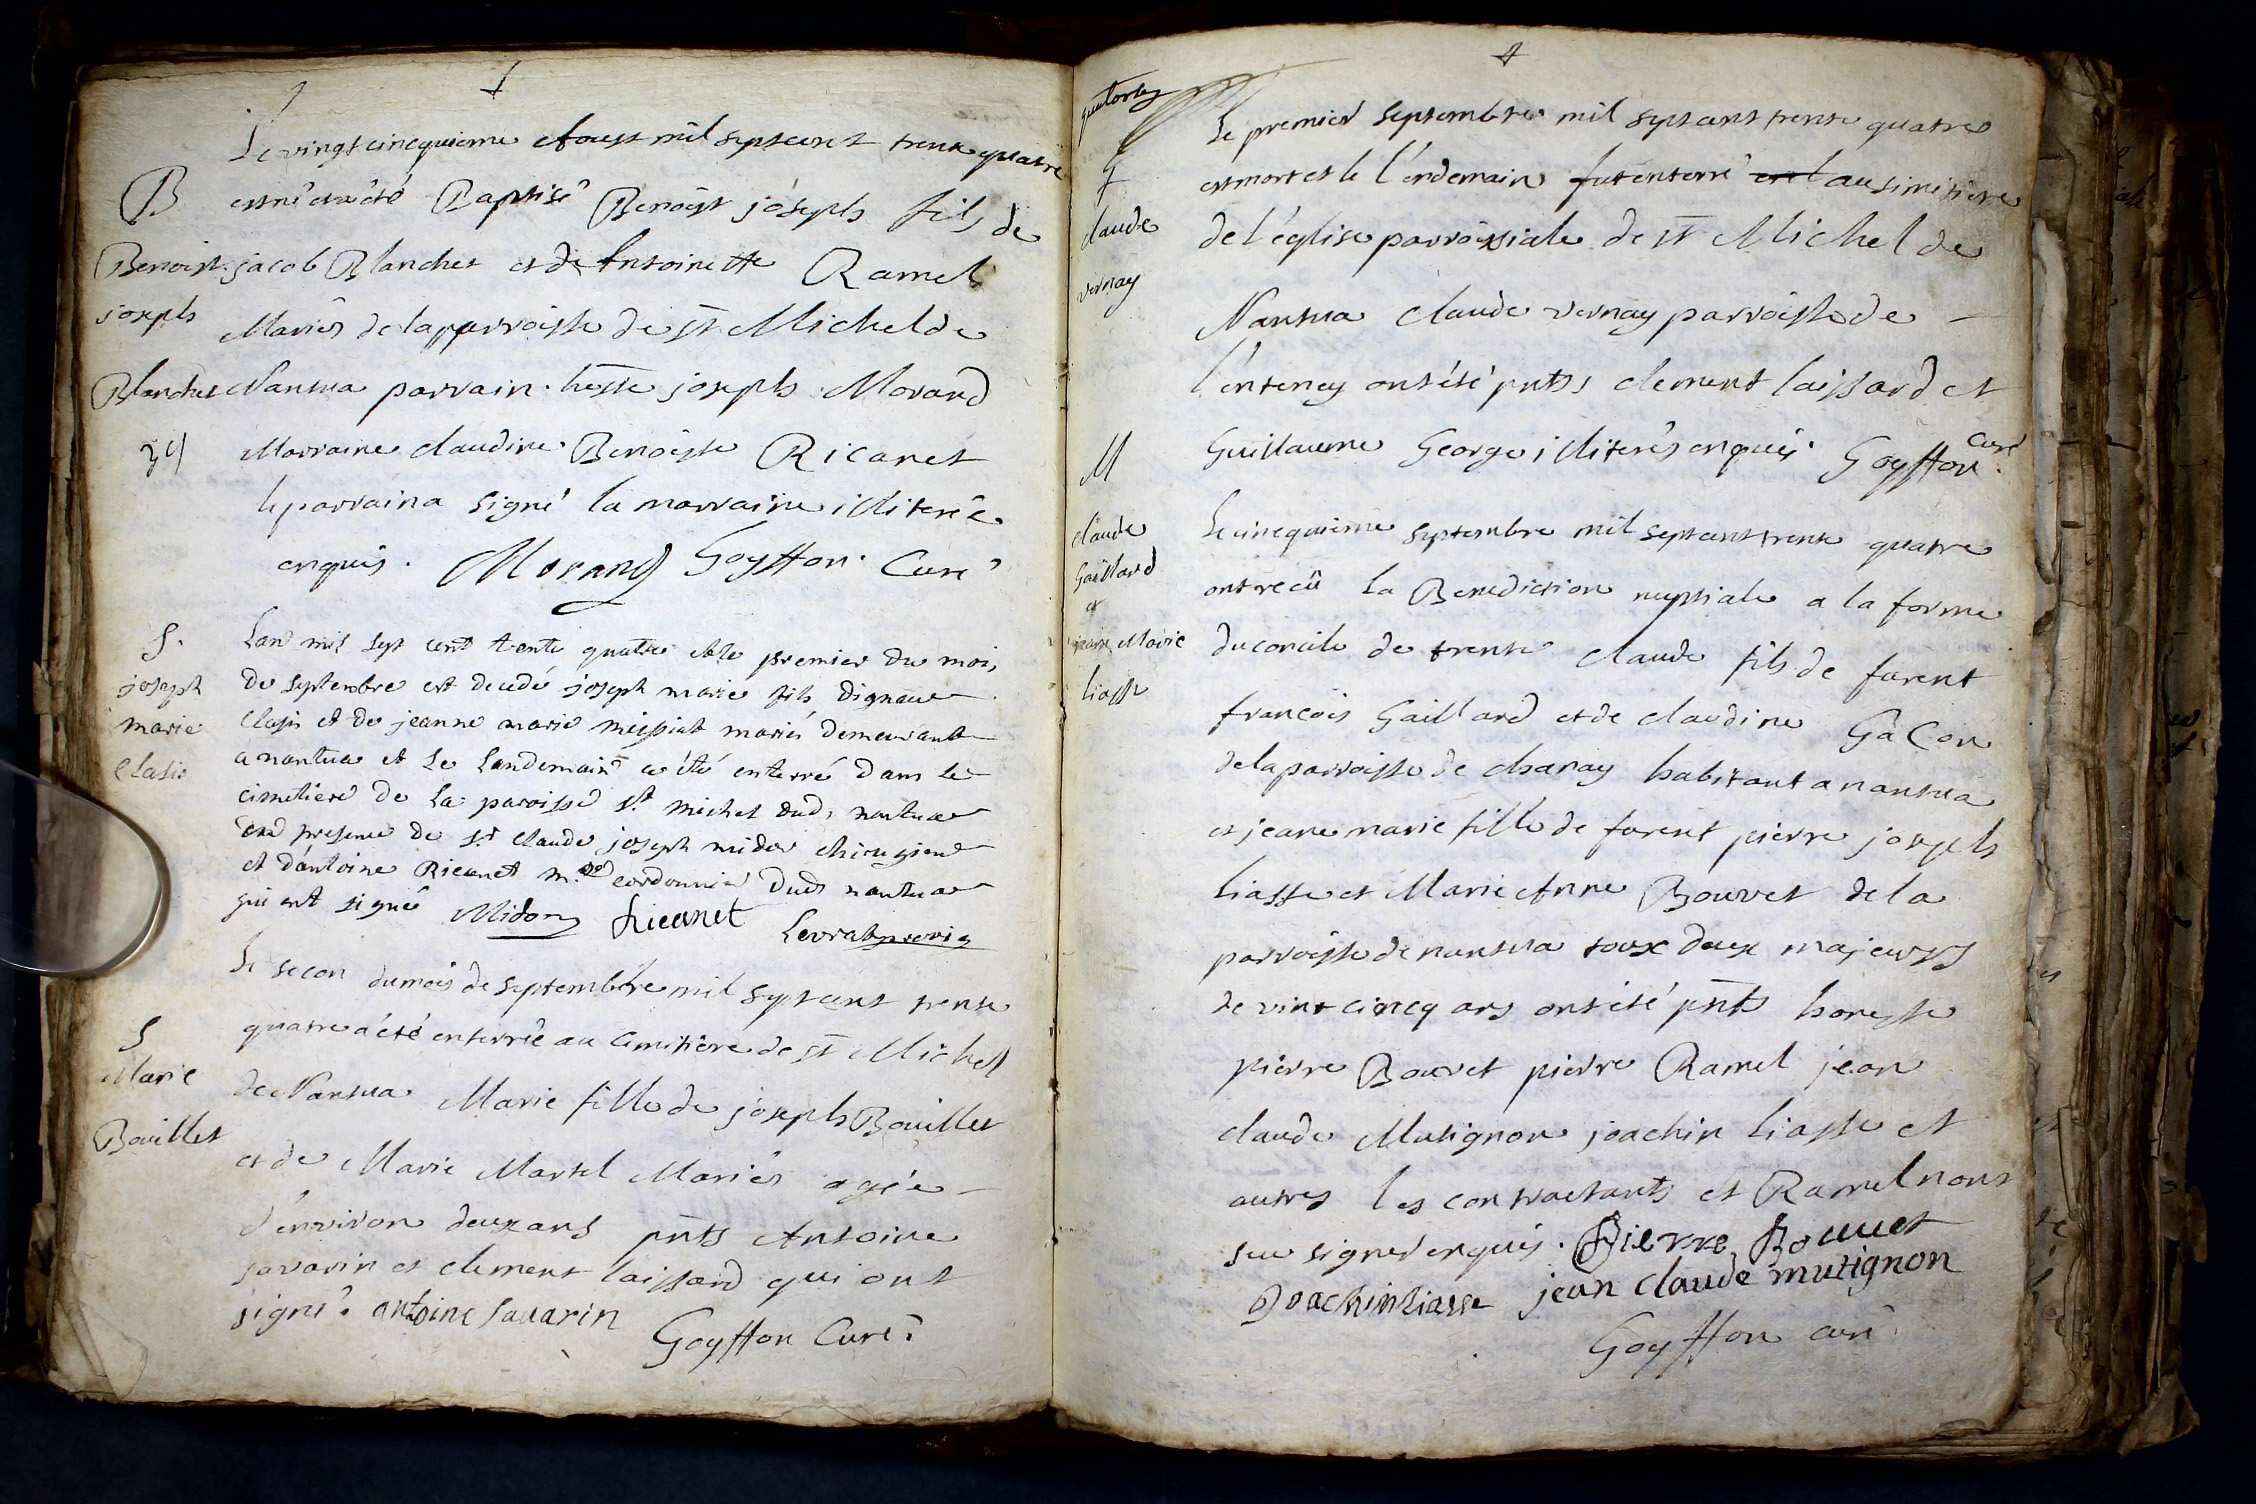 B
Benoist
joseph
Blanchet
Le vingt cincquieme Aoust mil septcent trente quatre
est né et a été Baptisé Benoist joseph fils de
jacob Blanchet et de Antoinette Ramel
Mariés de la parroisse de st Michel de
Nantua parrain. hoste joseph Morand
Marraine claudine Benoiste Ricanet
le parrain a signé la marraine illiterée
enquis. Morand Goyffon Curé
S.
joseph
marie
Clasis
Lan mil sept cent trente quatre et le premier du mois
de septembre est decedé joseph marie fils dignace
Clasis et de jeanne marie missiat mariés demeurant
a nantua et le landemain a été enterré dans le
cimetiere de la paroisse st michel dud. nantua
en presence de sr claude joseph midon chirugien
et d'antoine Ricanet me cordonnier dud nantua
qui ont signé Midon Ricanet Levrat
S
Marie
Bouillet
le secon du mois de septembre mil septcent trente
quatre a été enterrée au cimitiere de st Michel
de Nantua Marie fille de joseph Bouillet
et de Marie Martel Mariés agée
d'environ deux ans pnts Antoine
savarin et clement laissard qui ont
signé. antoine Savarin
Goyffon Curé
quatorze
S
claude
vernay
Le premier septembre mil septcent trente quatre
est mort et le l'endemain fut enterré au simitiere
de l'église parroissiale de st Michel de
Nantua claude vernay parroisse de
l'entenay ont été pnts clement laissard et
Guillaume George illiterés enquis. Goyffon Curé
M
claude
Gaillard
et
jeanne Marie
liasse
Le cincquieme septembre mil septcent trente quatre
ont recû la Benediction nuptiale a la forme
du concile de trente claude fils de furent
francois Gaillard et de claudine Gâcon
de la parroisse de chanay habitant a nantua
et jeane marie fille de furent pierre joseph
liasse et Marie Anne Bouvet de la
parroisse de nantua toux deux majeurs
de vint cincq ans ont été pnts honeste
pierre Bouvet pierre Ramel jean
claude Mutignon joachin liasse et
autres les contractants et Ramel nont
sceu signer enquis. Pierre Bouuet
Joachin Liasse jean claude mutignon
Goyffon curé